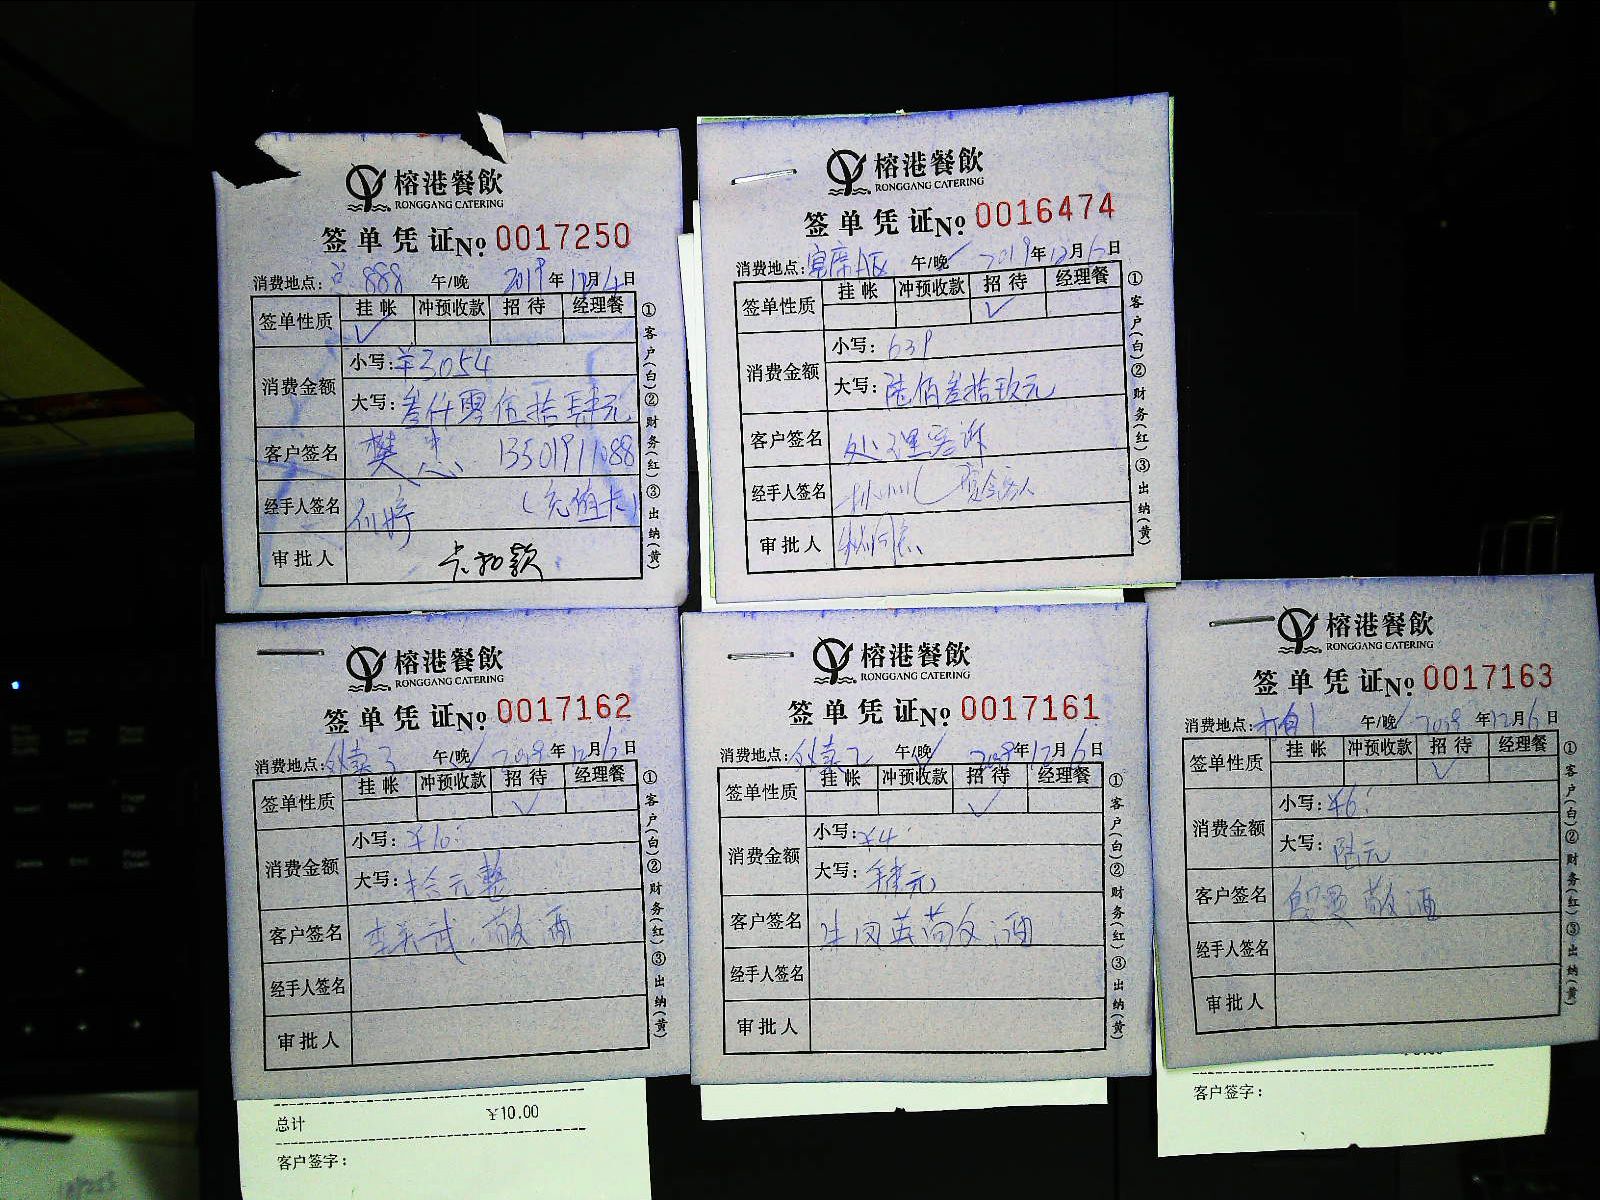 榕港餐飲
RONGGANG CATERING
签单凭证 № 0017250
消费地点: 888 午/晚 2019年12月4日
签单性质 挂帐 冲预收款 招待 经理餐
✓
消费金额 小写: ¥3054
大写: 叁仟零伍拾肆元
客户签名 樊 13501911088
经手人签名 (充值卡)
审批人 卡扣款
①客户(白)②财务(红)③出纳(黄)
榕港餐飲
RONGGANG CATERING
签单凭证 № 0016474
消费地点: 午/晚 ✓ 2019年12月6日
签单性质 挂帐 冲预收款 招待 经理餐
✓
消费金额 小写: 639
大写: 陆佰叁拾玖元
客户签名 处理客诉
经手人签名
审批人
①客户(白)②财务(红)③出纳(黄)
榕港餐飲
RONGGANG CATERING
签单凭证 № 0017162
消费地点: 外卖3 午/晚 ✓ 2019年12月6日
签单性质 挂帐 冲预收款 招待 经理餐
✓
消费金额 小写: ¥10
大写: 拾元整
客户签名 敬酒
经手人签名
审批人
①客户(白)②财务(红)③出纳(黄)
总计 ¥10.00
客户签字:
榕港餐飲
RONGGANG CATERING
签单凭证 № 0017161
消费地点: 外卖2 午/晚 ✓ 2019年12月6日
签单性质 挂帐 冲预收款 招待 经理餐
✓
消费金额 小写: ¥4
大写: 肆元
客户签名 敬酒
经手人签名
审批人
①客户(白)②财务(红)③出纳(黄)
榕港餐飲
RONGGANG CATERING
签单凭证 № 0017163
消费地点: 午/晚 ✓ 2019年12月6日
签单性质 挂帐 冲预收款 招待 经理餐
✓
消费金额 小写: ¥6
大写: 陆元
客户签名 敬酒
经手人签名
审批人
①客户(白)②财务(红)③出纳(黄)
客户签字: